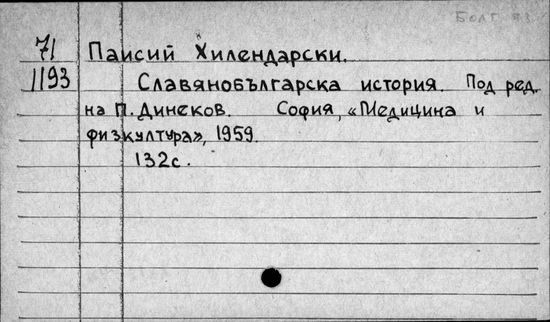 Болг яз.
71 Паисий Хилендарски.
1193 Славянобългарска история. Под ред.
на П. Динеков. София, «Медицина и
физкултура», 1959.
132с.